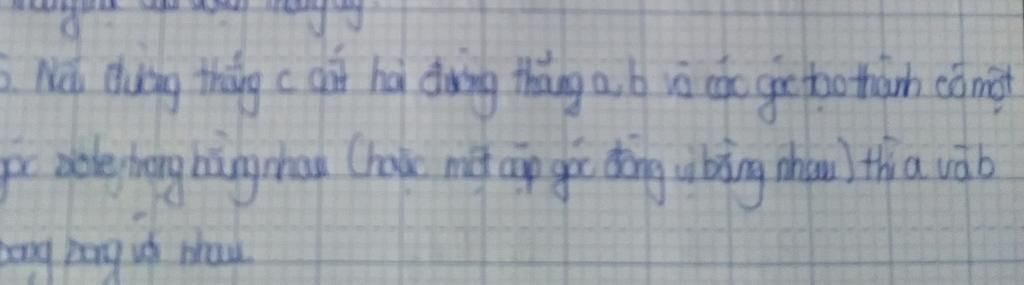 5. Nếu đường thẳng c cắt hai đường thẳng a, b và các góc tạo thành có một
góc so le trong bằng nhau (hoặc một cặp góc đồng vị bằng nhau) thì a và b
song song với nhau